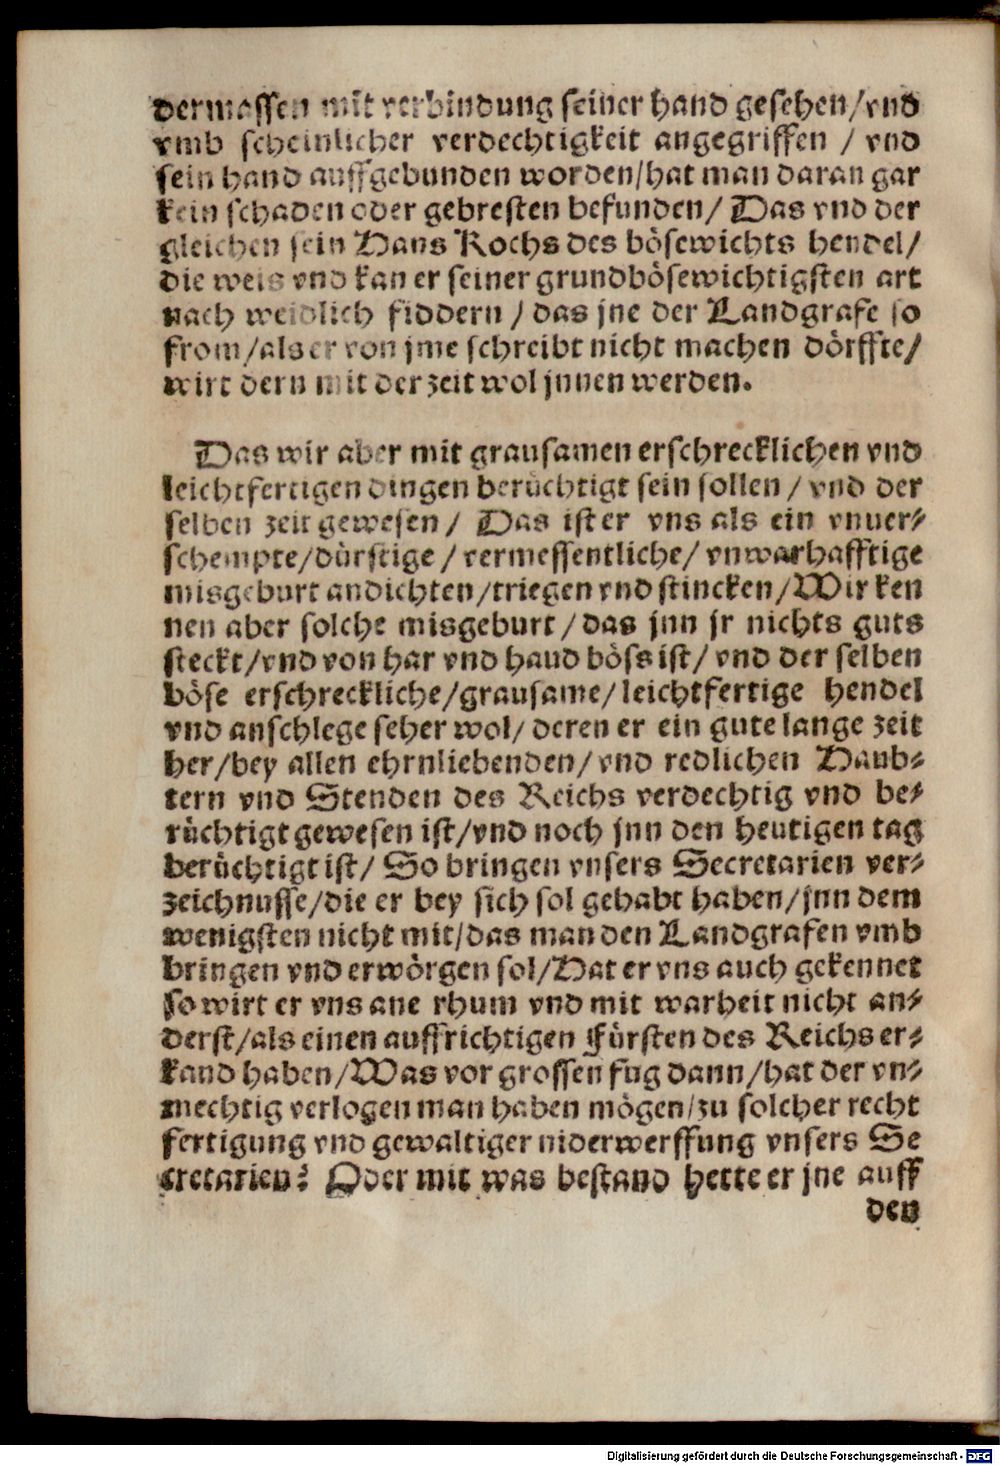 dermassen mit verbindung seiner hand gesehen/vnd
vmb scheinlicher verdechtigkeit angegriffen / vnd
sein hand auffgebunden worden/hat man daran gar
kein schaden oder gebresten befunden/ Das vnd der
gleichen sein Hans Kochs des bösewichts hendel/
die weis vnd kan er seiner grundbösewichtigsten art
nach weidlich fiddern / das jne der Landgrafe so
from/als er von jme schreibt nicht machen dörffte/
wirt dern mit der zeit wol jnnen werden.
Das wir aber mit grausamen erschrecklichen vnd
leichtfertigen dingen berüchtigt sein sollen / vnd der
selben zeit gewesen / Das ist er vns als ein vnuer⸗
schempte/dürstige / vermessentliche/ vnwarhafftige
misgeburt andichten/triegen vnd stincken/Wir ken
nen aber solche misgeburt / das jnn jr nichts guts
steckt/vnd von har vnd haud böss ist/ vnd der selben
böse erschreckliche/grausame/leichtfertige hendel
vnd anschlege seher wol/ deren er ein gute lange zeit
her/bey allen ehrnliebenden/ vnd redlichen Haub⸗
tern vnd Stenden des Reichs verdechtig vnd be⸗
rüchtigt gewesen ist/vnd noch jnn den heutigen tag
berüchtigt ist/ So bringen vnsers Secretarien ver⸗
zeichnusse/die er bey sich sol gehabt haben/jnn dem
wenigsten nicht mit/das man den Landgrafen vmb
bringen vnd erwörgen sol/Hat er vns auch gekennet
so wirt er vns ane rhum vnd mit warheit nicht an⸗
derst/als einen auffrichtigen Fürsten des Reichs er⸗
kand haben/Was vor grossen fug dann/hat der vn⸗
mechtig verlogen man haben mögen/zu solcher recht
fertigung vnd gewaltiger niderwerffung vnsers Se
cretarien? Oder mit was bestand hette er jne auff
den
Digitalisierung gefördert durch die Deutsche Forschungsgemeinschaft - DFG